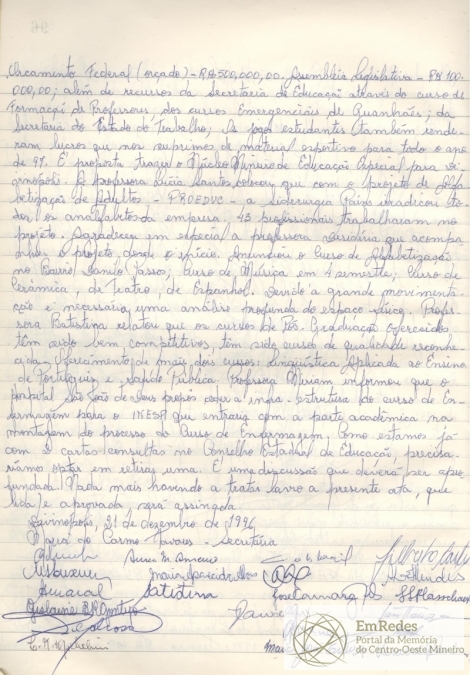 Orçamento Federal (orçado) - R$ 500.000,00. Assembléia Legislativa - R$ 100.
000,00; além de recursos da Secretaria de Educação através do curso de
Formação de Professores, dos cursos Emergenciais de Guanhães; da
Secretaria do Estado do Trabalho; Os jogos estudantes também rende-
ram lucros que nos suprimos de material esportivo para todo o ano
de 97. É proposta trazer o Núcleo Mineiro de Educação Especial para Di-
vinópolis. A professora Lúcia Santos, colocou que com o projeto de Alfa-
betização de Adultos - PROEDUC - a Siderurgia Pains erradicou to-
dos os analfabetos da empresa. 43 profissionais trabalharam no
projeto. Agradeceu em especial a professora que acompa-
nhou o projeto desde o início. Anunciou o Curso de Alfabetização
no Bairro Danilo Passos; Curso de Música em 4 semestre; Curso de
Cerâmica, de Teatro, de Espanhol. Devido a grande movimenta-
ção é necessário uma análise profunda do espaço físico. Profes-
sora Batistina relatou que os cursos de Pós-Graduação oferecidos
têm sido bem competitivos, têm sido cursos de qualidade reconhe-
cida. Oferecimento de mais dois cursos: Lingüística Aplicada ao Ensino
de Português e Saúde Pública. Professora Miriam informou que o
hospital São João de Deus propôs ceder a infra-estrutura do curso de En-
fermagem para o INESP que entraria com a parte acadêmica na
montagem do processo do Curso de Enfermagem. Como estamos já
com 2 cartas-consultas no Conselho Estadual de Educação, precisa-
ríamos optar em retirar uma. É uma discussão que deverá ser apro-
fundada. Nada mais havendo a tratar lavro a presente ata, que
lida e aprovada, será assinada.
Divinópolis, 21 de dezembro de 1996
Maria do Carmo Tavares - Secretária
Batistina
EmRedes
Portal da Memória
do Centro-Oeste Mineiro